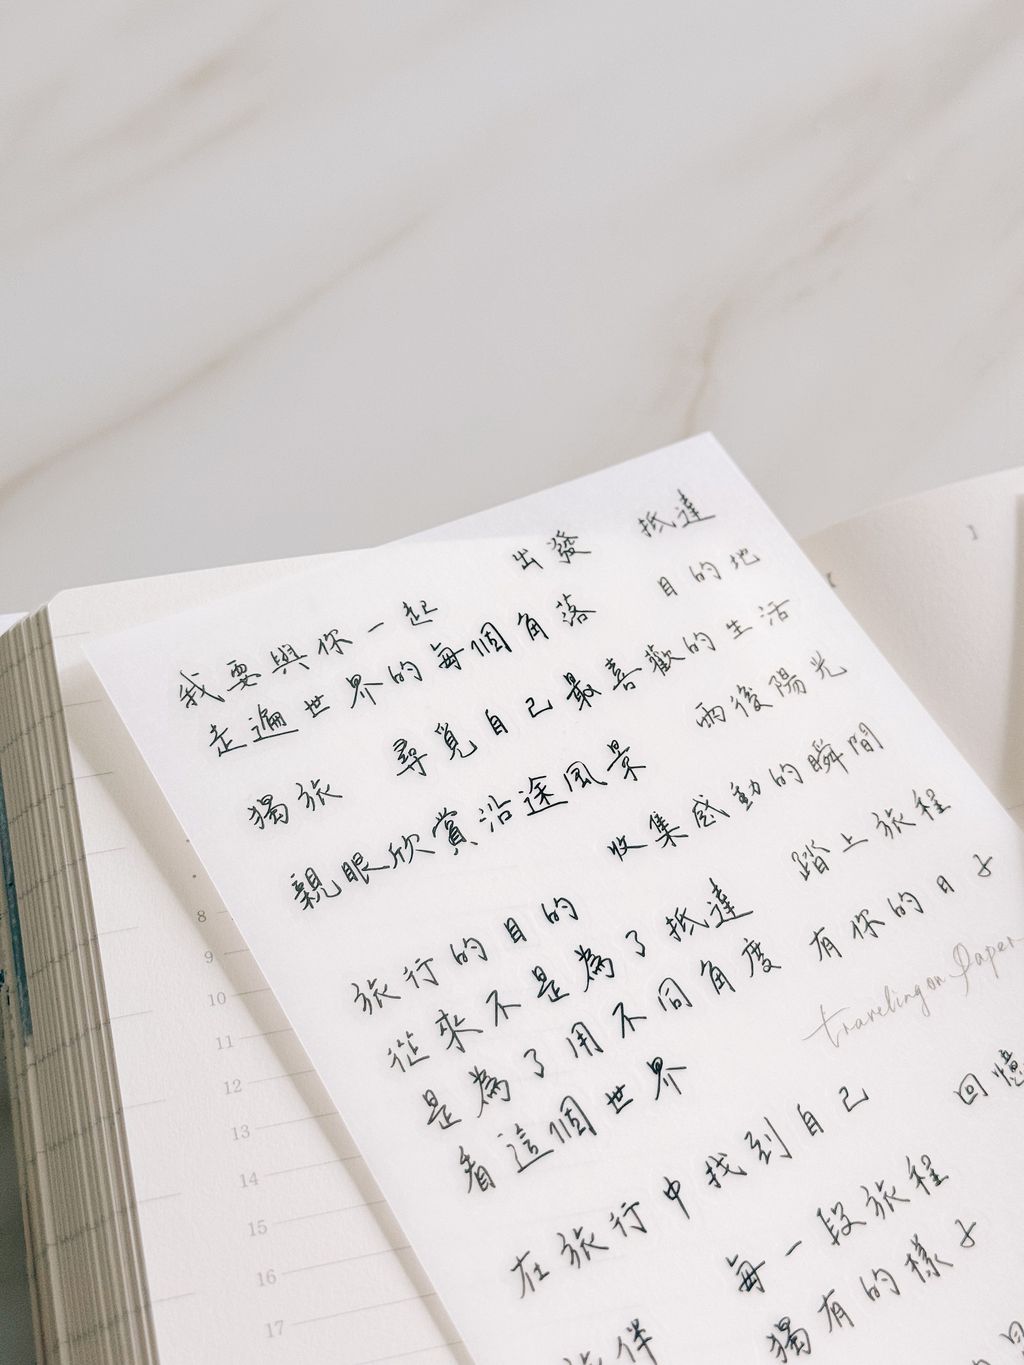 出發 抵達
我要與你一起 目的地
走遍世界的每個角落
獨旅 尋覓自己最喜歡的生活
親眼欣賞沿途風景 雨後陽光
收集感動的瞬間
旅行的目的 踏上旅程
從來不是為了抵達
是為了用不同角度 有你的日子
看這個世界
traveling on Paper
在旅行中找到自己 回憶
每一段旅程
旅伴 獨有的樣子
8
9
10
11
12
13
14
15
16
17